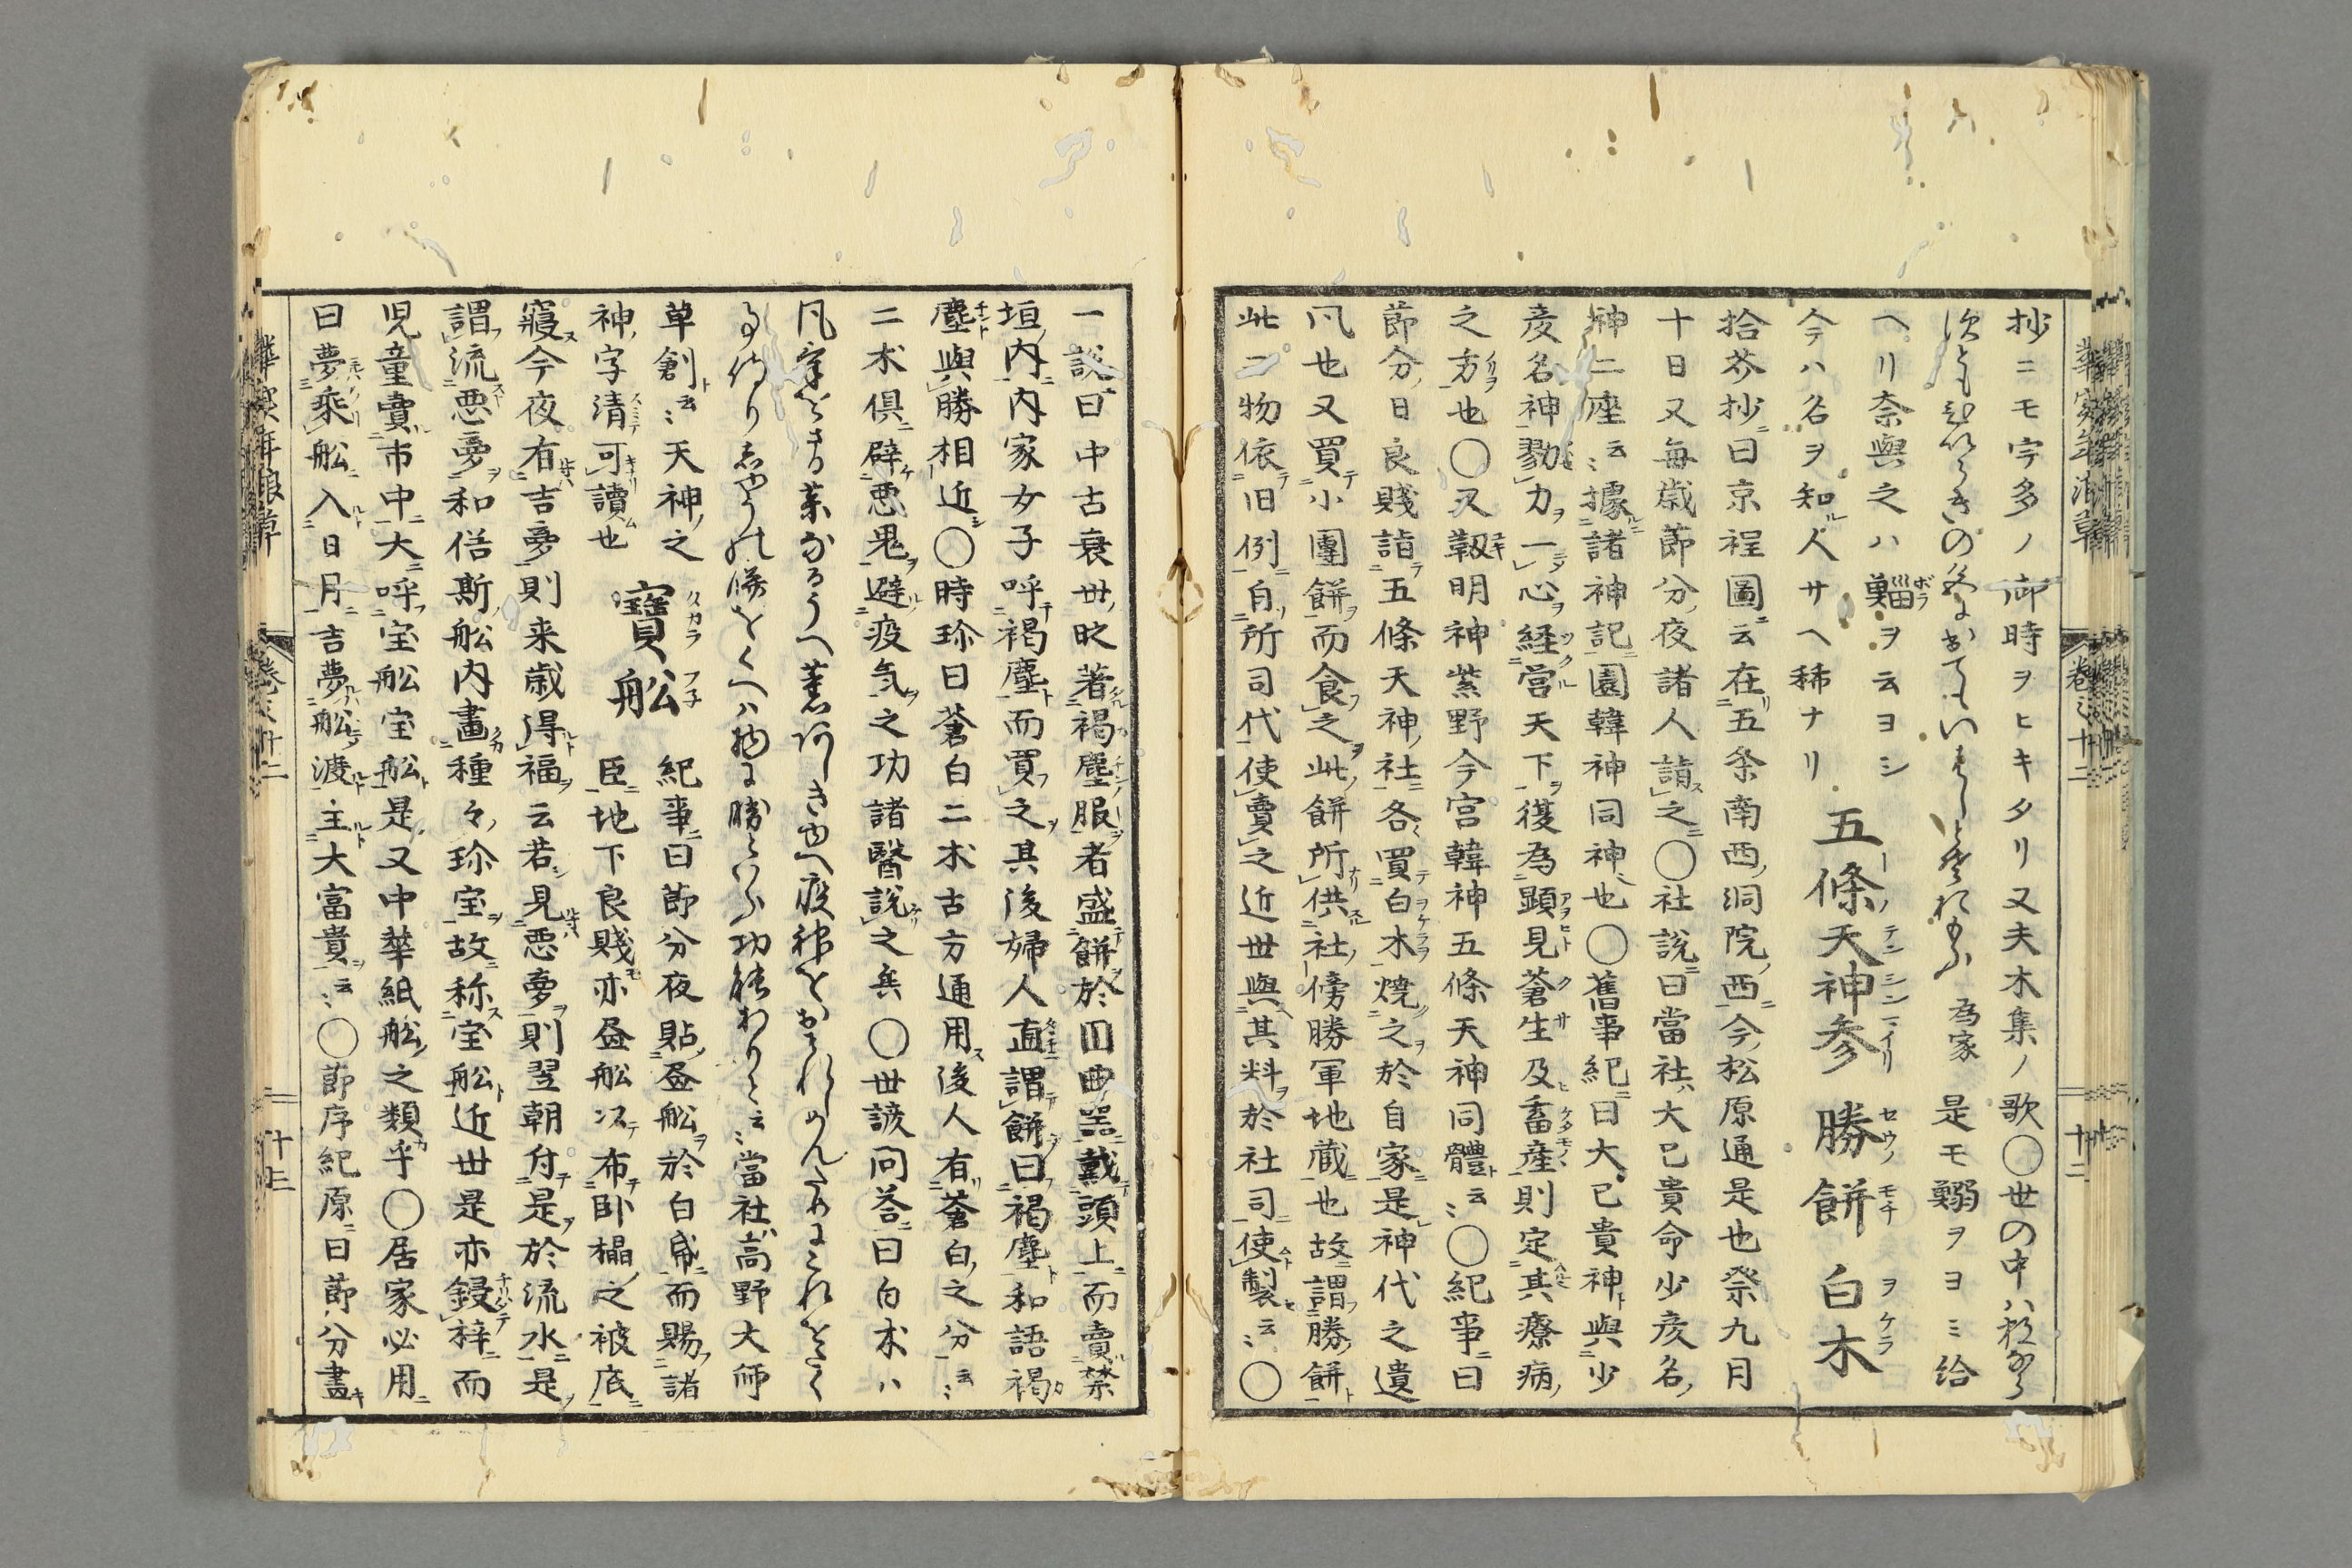 抄ニモ宇多ノ御時ヲヒキタリ又夫木集ノ歌〇世の中ハ
為家 是モ鰯ヲヨミ給
ヘリ奈與之ハ鯔ヲ云ヨシ
今ハ名ヲ知ル人サヘ稀ナリ 五條天神参 勝餅 白朮
拾芥抄曰京程圖云在五条南西洞院西今松原通是也祭九月
十日又毎歳節分夜諸人詣之〇社説曰當社大己貴命少彦名
神二座云々據諸神記園韓神同神也〇舊事紀曰大己貴神與少
彦名神勠力一心経営天下復為顕見蒼生及畜産則定其療病
之方也〇又靱明神紫野今宮韓神五條天神同體云々〇紀事曰
節分日良賤詣五條天神社各買白朮焼之於自家是神代之遺
風也又買小團餅而食之此餅所供社傍勝軍地蔵也故謂勝餅
此二物依旧例自所司代使賣之近世與其料於社司使製云々〇
一説曰中古衰世著褐塵服者盛餅於曲器戴頭上而賣禁
垣内内家女子呼褐塵而買之其後婦人直謂餅曰褐塵和語褐
塵與勝相近〇時珍曰蒼白二朮古方通用後人有蒼白之分云々
二朮倶辟悪鬼避疫気之功諸醫説之矣〇世諺問答曰白朮ハ
功能ありと云々當社高野大師
草創云々天神之
神字清可讀也 寶舩 紀事曰節分夜貼畫舩於白帋而賜諸
臣地下良賤亦畫舩以布臥榻之被底
寢今夜有吉夢則来歳得福云若見悪夢則翌朝付是於流水是
謂流悪夢和俗斯舩内畫種々珍宝故称宝舩近世是亦鋟梓而
児童賣市中大呼宝舩宝舩是又中華紙舩之類乎〇居家必用
曰夢乘舩入日月吉夢舩渡主大富貴云々〇節序紀原曰節分畫